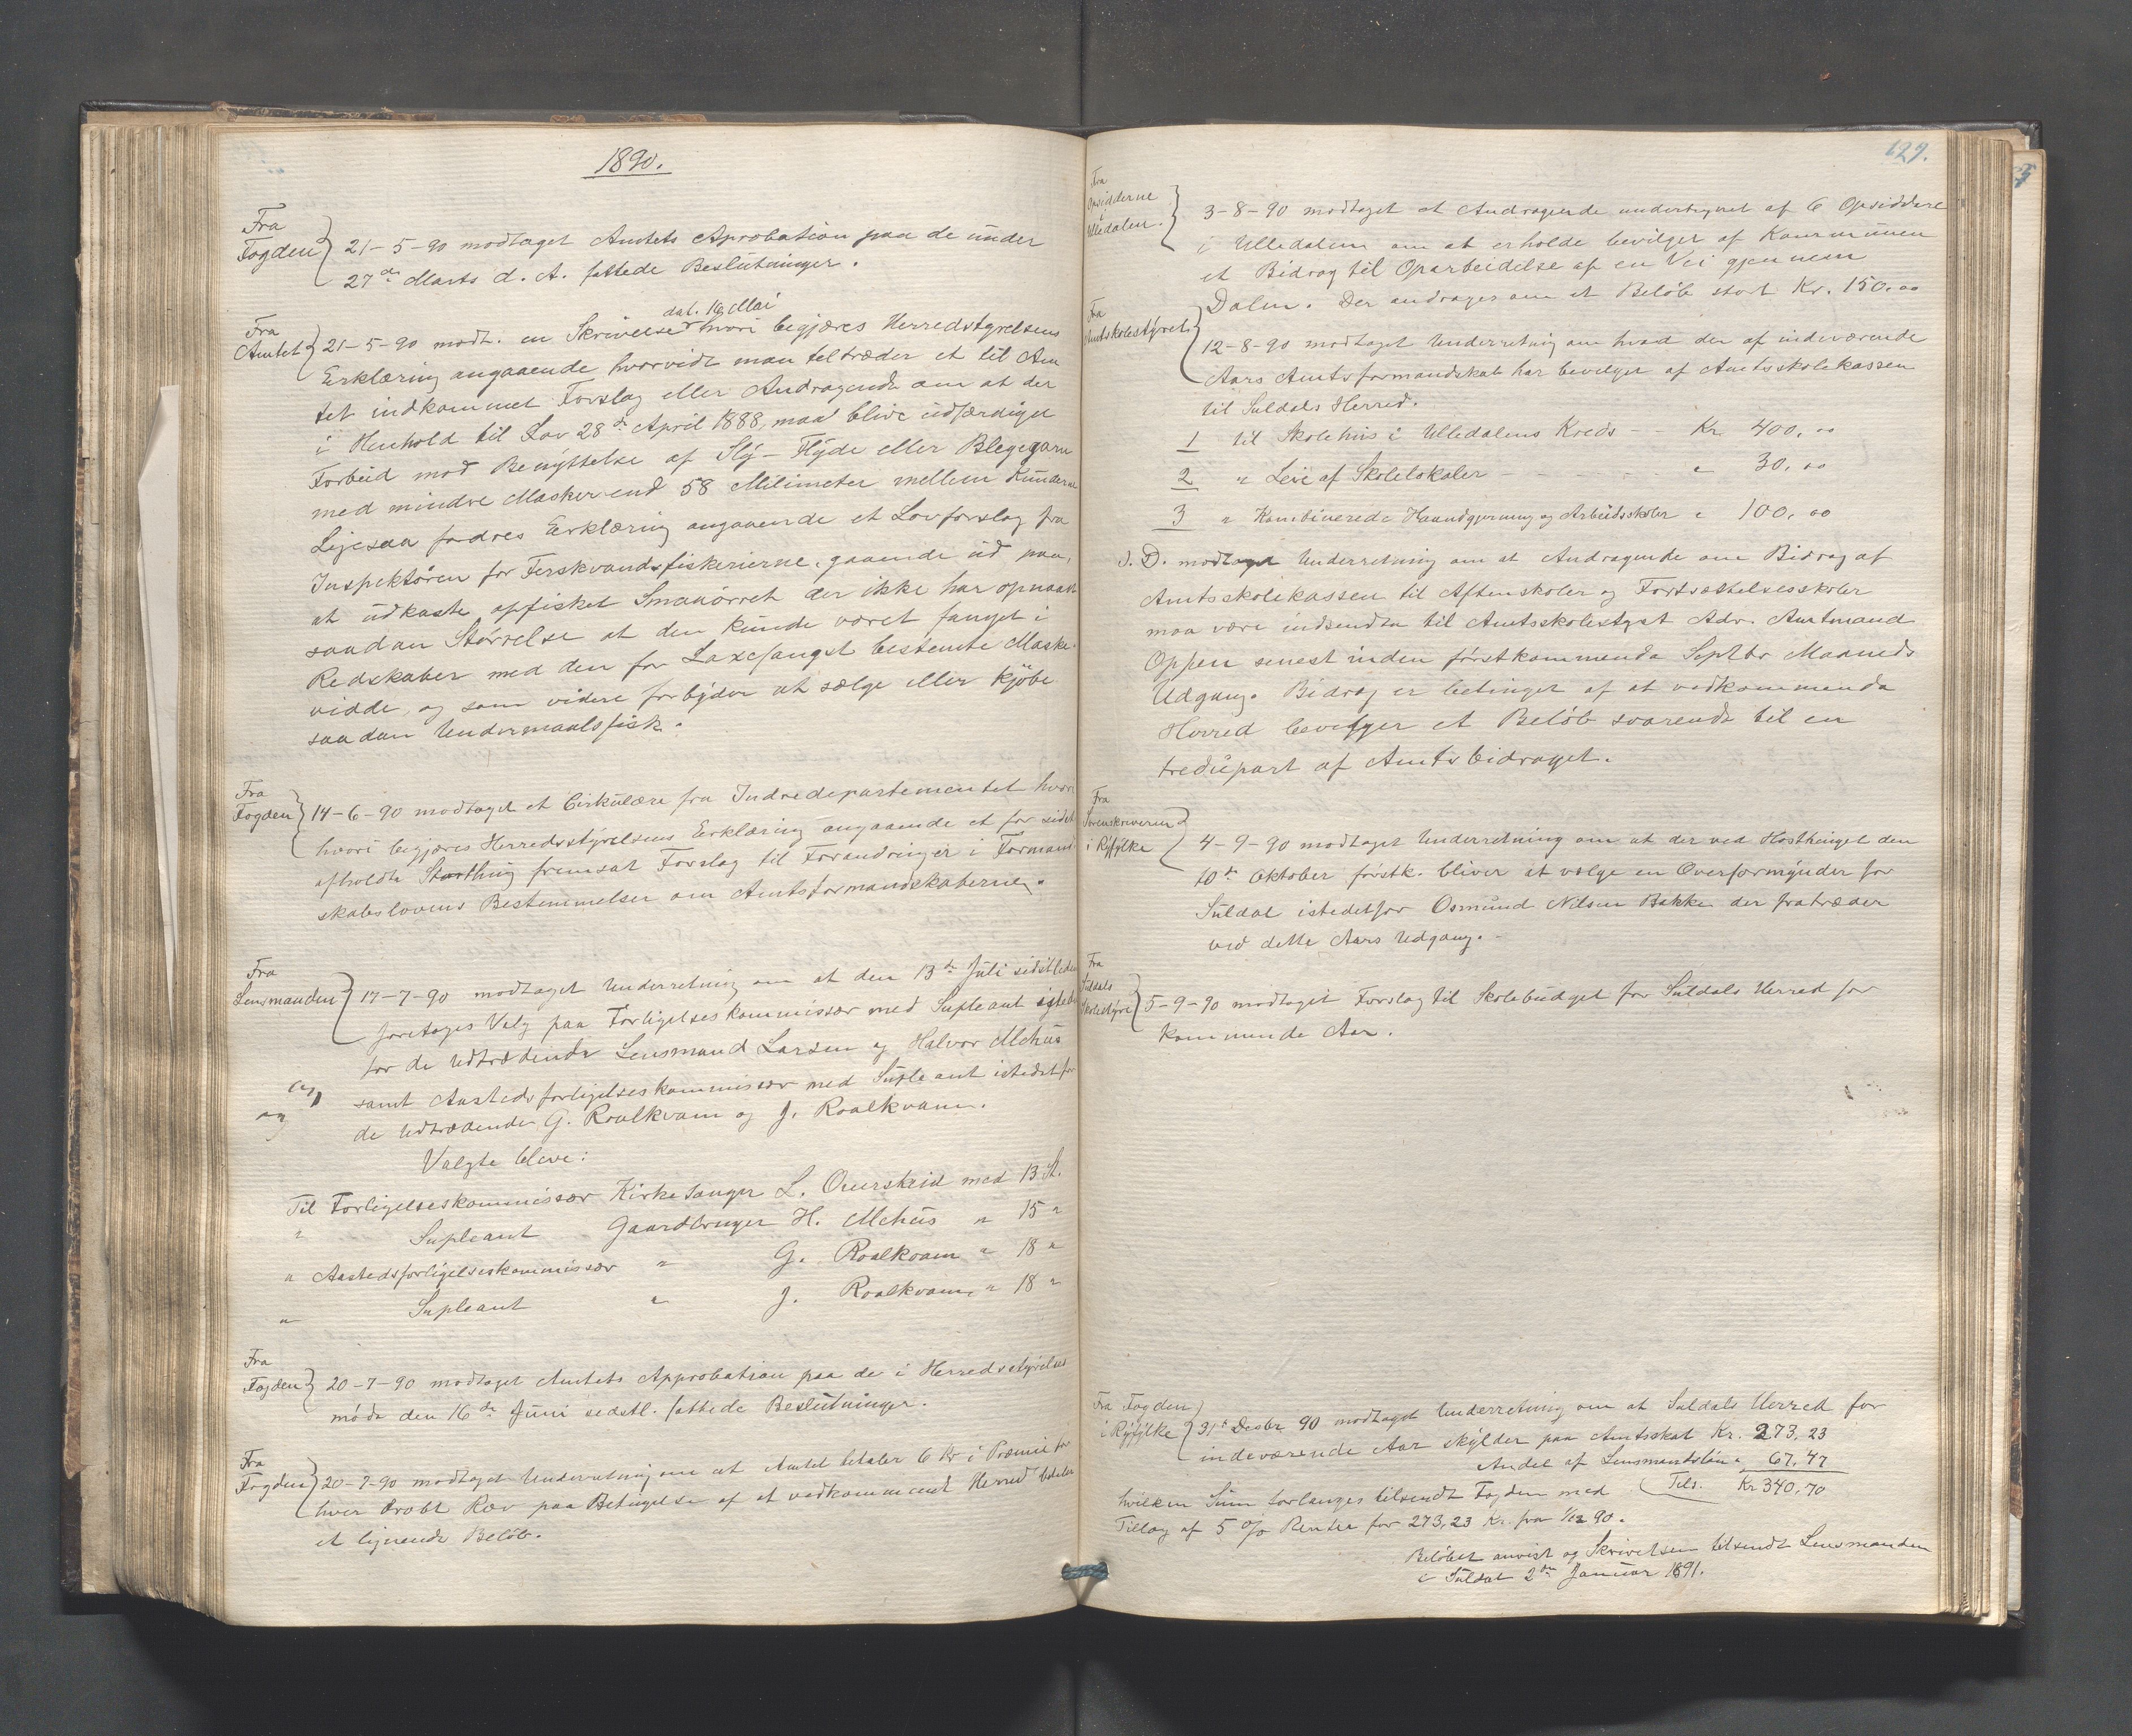 1890.
Fra
Fogden 21-5-90 modtaget Amtets Aprobation paa de under
27de Marts d. A. fattede Beslutninger.
dat. 19 Mai
Fra
Amtet 21-5-90 modt. en Skrivelse hvori begjæres Herredstyrelsens
Erklæring angaaende hvorvidt man tiltræder et til Am
tet indkommet Forslag eller Andragende om at der
i Henhold til Lov 28de April 1888, maa blive udfærdiget
Forbud mod Benyttelse af Sly- Flyde eller Blegegarn
med mindre Masker end 58 Milimeter mellem Knuderne
Ligesaa fordres Erklæring angaaende et Lovforslag fra
Inspektøren for Ferskvandsfiskerierne, gaaende ud paa,
at udkaste opfisket Smaaørret der ikke har opnaaet
saadan Størrelse at den kunde været fanget i
Redskaber med den for Laxefangst bestemte Maske-
vidde, og som videre forbyder at sælge eller kjøbe
saadan Undermaalsfisk.
Fra
Fogden 14-6-90 modtaget et Cirkulære fra Indredepartementet hvori
hvori begjæres Herredsstyrelsens Erklæring angaaende et for sidst
afholdte Storthing fremsat Forslag til Forandringer i Formand
skabslovens Bestemmelser om Amtsformandskaberne.
Fra
Lensmanden 17-7-90 modtaget Underretning om at den 13de Juli sidstleden
foretages Valg paa Forligelseskommissær med Supleant istedet
for de Udtrædende Lensmand Larsen og Halvor Mehus
samt Aastedsforligelseskommissær med Supleant istedetfor
de Udtrædende G. Roalkvam og J. Roalkvam.
Valgte bleve:
Til Forligelseskommissær Kirkesanger L. Ourskeid med 13 St.
" Supleant Gaardbruger H. Mehus " 15 "
" Aastedsforligelseskommissær " G. Roalkvam " 18 "
" Supleant " J. Roalkvam " 18 "
Fra
Fogden 20-7-90 modtaget Amtets Approbation paa de i Herredsstyrelses
møde den 16de Juni sidstl. fattede Beslutninger.
Fra
Fogden 20-7-90 modtaget Underretning om at Amtet betaler 6 Kr i Præmie for
hver dræbt Ræv paa Betingelse af at vedkommende Herred betaler
et lignende Beløb.
129.
Fra
Opsidderne
i
Ulledalen. 3-8-90 modtaget et Andragende undertegnet af 6 Opsiddere
i Ulledalen om at erholde bevilget af Kommunen
et Bidrag til Oparbeidelse af en Vei gjennem
Dalen. Der andrages om et Beløb stort Kr. 150.00
Fra
Amtsskolestyret 12-8-90 modtaget Underretning om hvad der af indeværende
Aars Amtsformandskab har bevilget af Amtsskolekassen
til Suldals Herred.
1 til Skolehus i Ulledalens Kreds - - Kr 400,00
2 " Leie af Skolelokaler - - - - " 30,00
3 " Kombinerede Haandgjerning og Arbeidsskoler " 100,00
S. D. modtaget Underretning om at Andragende om Bidrag af
Amtsskolekassen til Aftenskoler og Fortsættelsesskoler
maa være indsendte til Amtsskolestyret Adr. Amtmand
Oppen senest inden førstkommende Septbr Maaneds
Udgang. Bidrag er betinget af at vedkommende
Herred bevilger et Beløb svarende til en
tredjepart af Amtsbidraget.
Fra
Sorenskriveren
i Ryfylke 4-9-90 modtaget Underretning om at der ved Høstthinget den
10de Oktober førstk. bliver at vælge en Overformynder for
Suldal istedetfor Osmund Nilsen Bakke der fratræder
ved dette Aars Udgang. -
Fra
Suldals
Skolestyre 5-9-90 modtaget Forslag til Skolebudget for Suldals Herred for
kommende Aar.
Fra Fogden
i Ryfylke 31te Desbr 90 modtaget Underretning om at Suldals Herred for
indeværende Aar skylder paa Amtsskat Kr. 273,23
Andel af Lensmandsløn " 67,47
Tils. Kr 340,70
hvilken Sum forlanges tilsendt Fogden med
Tillæg af 5 % Renter for 273,23 Kr. fra 1/12 90.
Beløbet anvist og Skrivelsen tilsendt Lensmanden
i Suldal 2den Januar 1891.